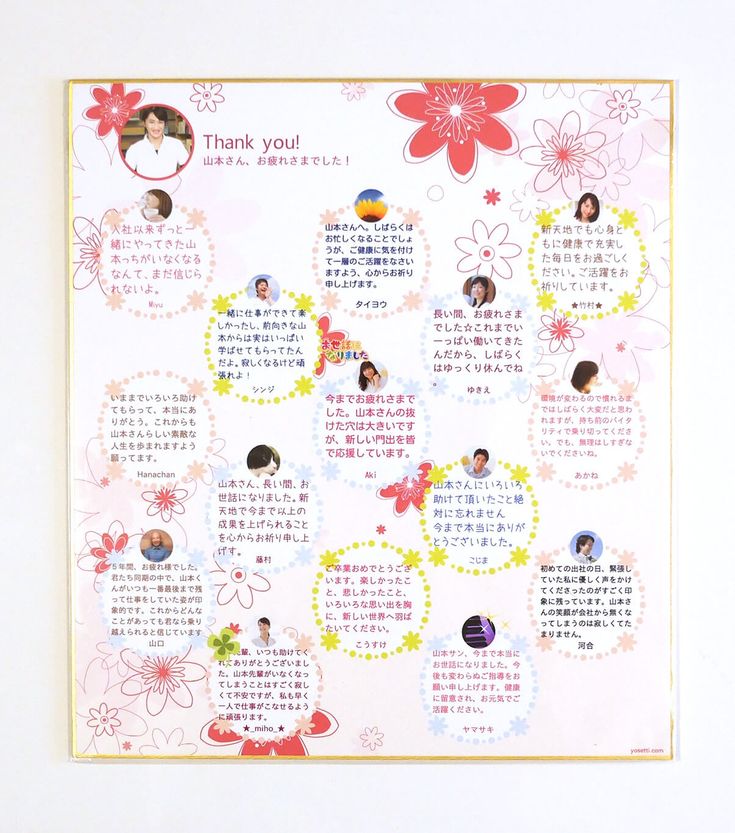 Thank you!
山本さん、お疲れさまでした！
入社以来ずっと一
緒にやってきた山
本っちがいなくなる
なんて、まだ信じら
れないよ。
Miyu
山本さんへ。しばらくは
お忙しくなることでしょ
うが、ご健康に気を付け
て一層のご活躍をなさい
ますよう、心からお祈り
申し上げます。
タイヨウ
新天地でも心身と
もに健康で充実し
た毎日をお過ごしく
ださい。ご活躍をお
祈りしています。
★竹村★
一緒に仕事ができて楽
しかったし、前向きな山
本からは実はいっぱい
学ばせてもらってたん
だよ。寂しくなるけど頑
張れよ！
シンジ
長い間、お疲れさま
でした☆これまでい
いーっぱい働いてきた
んだから、しばらく
はゆっくり休んでね
。
ゆきえ
お世話に
なりました
いままでいろいろ助け
てもらって、本当にあ
りがとう。これからも
山本さんらしい素敵な
人生を歩まれますよう
願ってます。
Hanachan
今までお疲れさまで
した。山本さんの抜
けた穴は大きいです
が、新しい門出を皆
で応援しています。
Aki
環境が変わるので慣れるま
ではしばらく大変だと思わ
れますが、持ち前のバイタ
リティで乗り切ってくださ
い。でも、無理はしすぎな
いでくださいね。
あかね
山本さん、長い間、お
世話になりました。新
天地で今まで以上の
成果を上げられること
を心からお祈り申し上
げす。
藤村
山本さんにいろいろ
助けて頂いたこと絶
対に忘れません
今まで本当にありが
とうございました。
こじま
５年間、お疲れ様でした。
君たち同期の中で、山本く
んがいつも一番最後まで残
って仕事をしていた姿が印
象的です。これからどんな
ことがあっても君なら乗り
越えられると信じています
山口
ご卒業おめでとうござ
います。楽しかったこ
と、悲しかったこと、
いろいろな思い出を胸
に、新しい世界へ羽ば
たいてください。
こうすけ
初めての出社の日、緊張し
ていた私に優しく声をかけ
てくださったのがすごく印
象に残っています。山本さ
んの笑顔が会社から無くな
ってしまうのは寂しくてた
まりません。
河合
輩、いつも助けてく
れてありがとうございまし
た。山本先輩がいなくなっ
てしまうことはすごく寂し
くて不安ですが、私も早く
一人で仕事がこなせるよう
に頑張ります。
★_miho_★
山本サン、今まで本当に
お世話になりました。今
後も変わらぬご指導をお
願い申し上げます。健康
に留意され、お元気でご
活躍ください。
ヤマサキ
yosetti.com